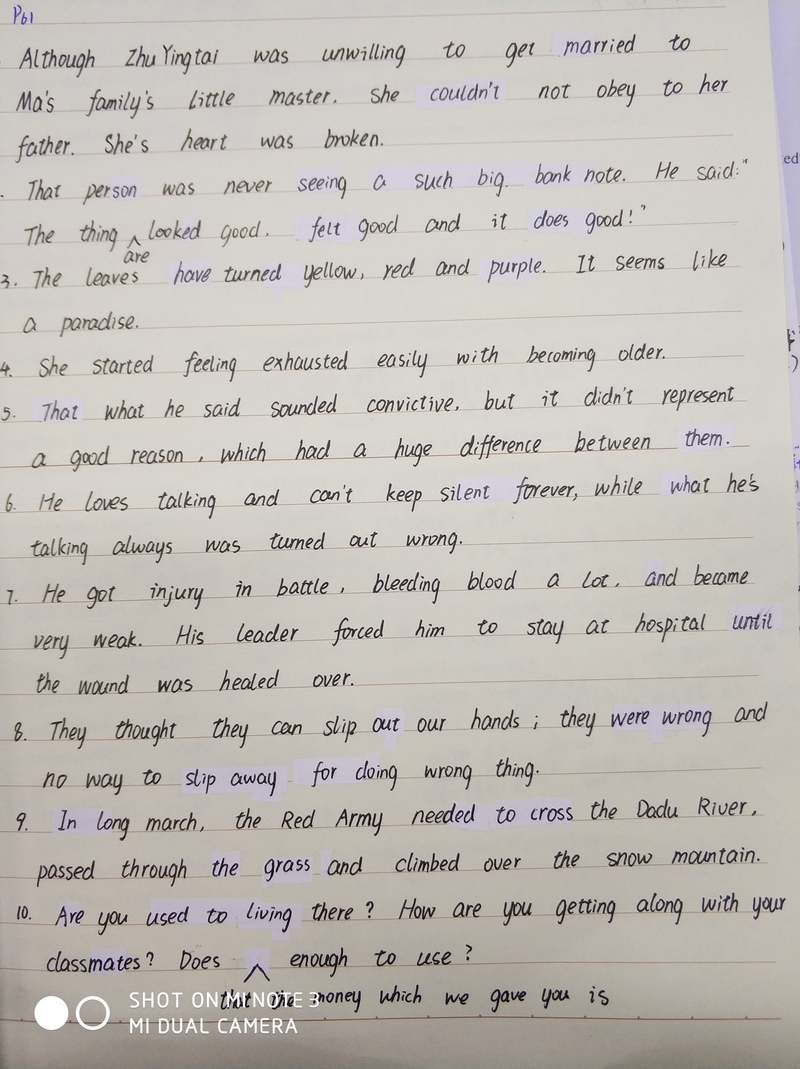 P61
Although Zhu Yingtai was unwilling to get married to
Ma's family's little master. She couldn't not obey to her
father. She's heart was broken.
. That person was never seeing a such big bank note. He said:"
The thing looked good. felt good and it does good!"
are
3. The leaves have turned yellow, red and purple. It seems like
a paradise.
4. She started feeling exhausted easily with becoming older.
5. That what he said sounded convictive, but it didn't represent
a good reason, which had a huge difference between them.
6. He loves talking and can't keep silent forever, while what he's
talking always was turned out wrong.
7. He got injury in battle, bleeding blood a lot, and became
very weak. His leader forced him to stay at hospital until
the wound was healed over.
8. They thought they can slip out our hands; they were wrong and
no way to slip away for doing wrong thing.
9. In long march, the Red Army needed to cross the Dadu River,
passed through the grass and climbed over the snow mountain.
10. Are you used to living there? How are you getting along with your
classmates? Does enough to use?
that the money which we gave you is
SHOT ON MI NOTE 3
MI DUAL CAMERA
ed